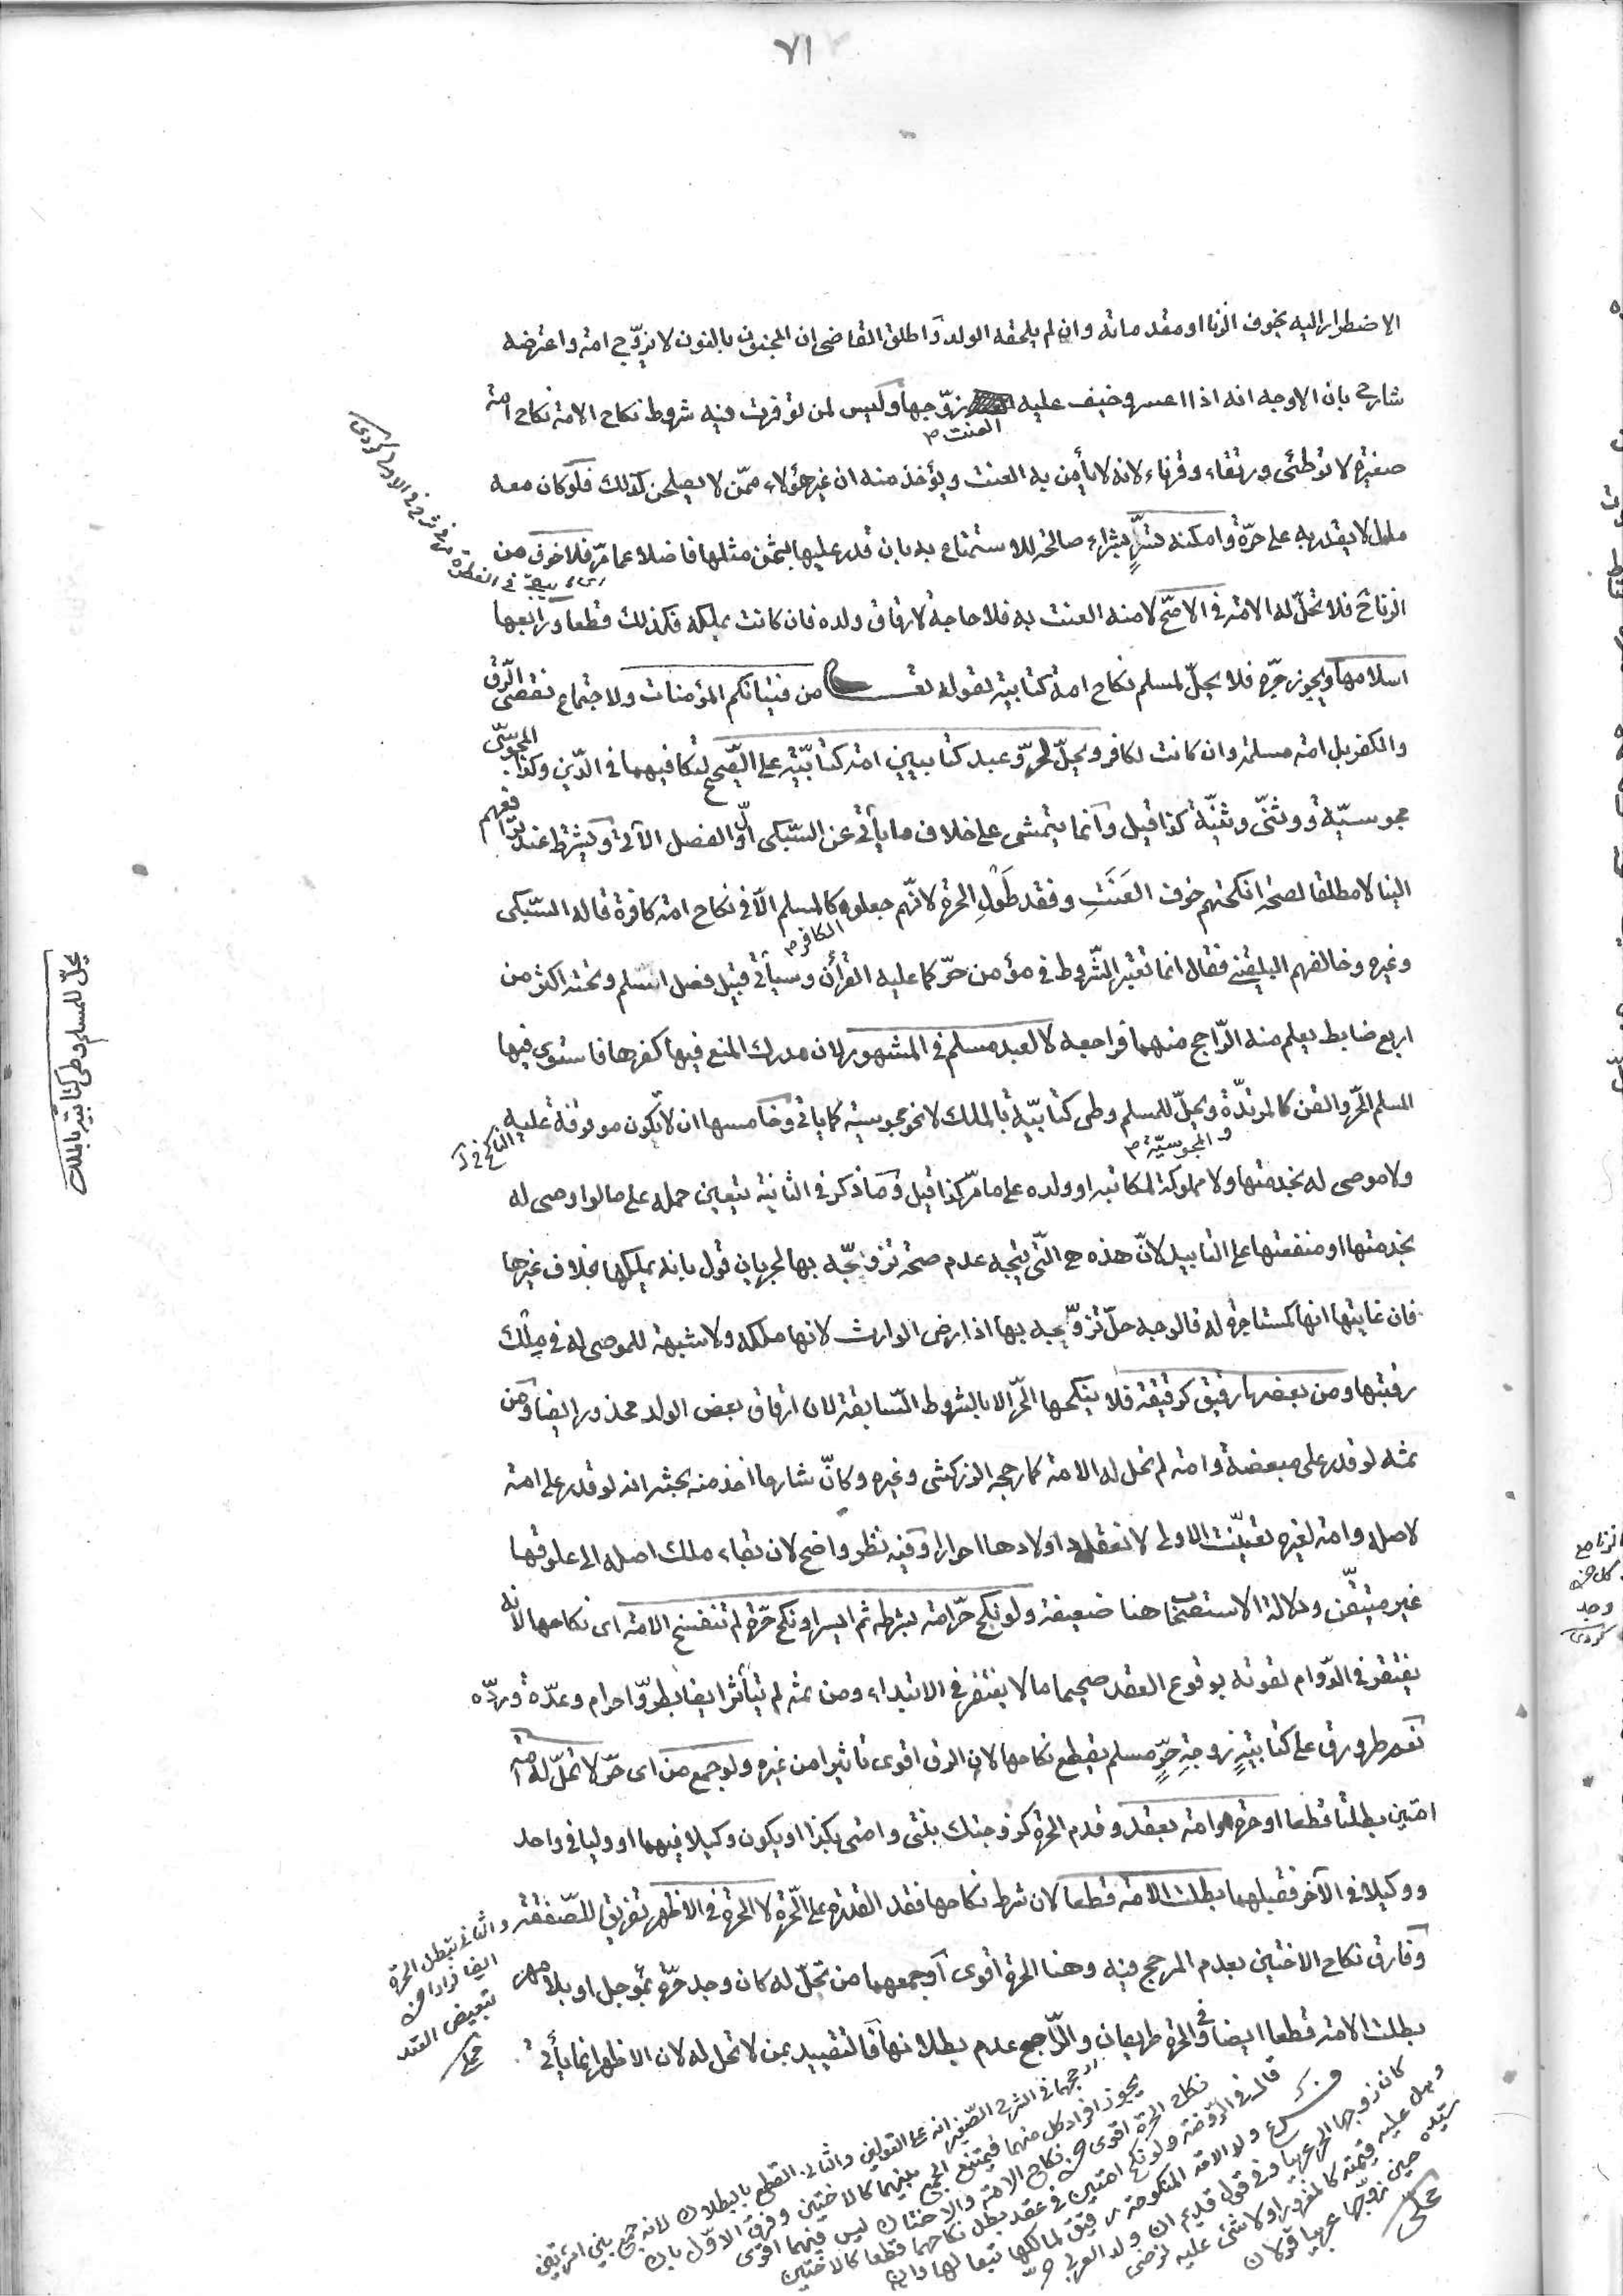 ٧١
الاضطرار اليه بخوف الزنا او مقدماته وان لم يلحقه الولد واطلق القاضى ان المجنون بالنون لا يزوّج امة واعترضه
شارح بان الاوجه انه اذا اعسر وخيف عليه العنت زوّجها وليس لمن توفرت فيه شروط نكاح الامة نكاح امة
صغيرة لا توطئ ورتقاء وقرناء لانه لا يأمن به العنت ويؤخذ منه ان غير هؤلاء ممّن لا يصلحن كذلك فلو كان معه
مال لا يقدر به على حرّة وامكنه تسرٍّ بشراء صالحة للاستمتاع به بان قدر عليها بثمن مثلها فاضلا عما مرّ فلا خوف من
الزنا ح فلا تحلّ له الامة فى الاصحّ لامنه العنت به فلا حاجة لارقاق ولده فان كانت بملكه فكذلك قطعا ورابعها
اسلامها ويجوز جرّه فلا يحلّ لمسلم نكاح امة كتابية لقوله تعالى من فتياتكم المؤمنات ولاجتماع نقصى الرّق
والكفر بل امة مسلمة وان كانت لكافر ويحلّ لحرّ وعبد كتابيين امة كتابيّة على الصّحيح لتكافيهما فى الدّين وكذا المجوسىّ
مجوسيّة ووثنىّ وثنيّة كذا قيل وانما يتمشى على خلاف ما يأتى عن السّبكى اوّل الفصل الآتى ويشترط عند ترافعهم
الينا لا مطلقا لصحة انكحتهم خوف العَنَتِ وفقد طَوْلِ الحرة لانّهم جعلوه كالمسلم الّا فى نكاح امة كافرة قاله السّبكى
الكافر م
وغيره وخالفهم البلقينى فقال انما تعتبر الشّروط فى مؤمن حرّ كما عليه القرأن وسيأتى قبيل فصل اسلم وتحته اكثر من
اربع ضابط يعلم منه الرّاجح منهما فراجعه لا لعبد مسلم فى المشهور لان مدرك المنع فيها كفرها فاستوى فيها
المسلم الحّر والقن كالمرتدّة ويحلّ للمسلم وطى كتابيّة بالملك لا نحو مجوسية كما يأتى وخامسها ان لا تكون موقوفة عليه
والمجوسيّة م
ولا موصى له بخدمتها ولا مملوكة لمكاتبه او ولده على ما مرّ كذا قيل وما ذكر فى الثانية يتعين حمله على ما لو اوصى له
بخدمتها او منفعتها على التابيد لانّ هذه هى الّتى يتجه عدم صحة تزويجه بها لجريان قول بانه يملكها بخلاف غيرها
فان غايتها انها كمستاجرة له فالوجه حلّ تزوّيجه بها اذا رضى الوارث لانها ملكه ولا شبهة للموصى له فى ملك
رقبتها ومن بعضها رقيق كرقيقة فلا ينكحها الحّر الا بالشروط السّابقة لان ارقاق بعض الولد محذور ايضا ومن
ثمه لو قدر على مبعضة وامة لم تحل له الامة كما رجحه الزركشى وغيره وكانّ شارحا اخذ منه بحثه انه لو قدر على امة
لاصله وامة لغيره تعيّنت الاولى لانعقاد اولادها احرارا وفيه نظر واضح لان بقاء ملك اصله الى علوقها
غير متيقّن ودلالة الاستصحاب هنا ضعيفة ولو نكح حّر امة بشرطه ثم ايسر او نكح حّرة لم تنفسخ الامة اى نكاحها لانه
يغتفر فى الدّوام لقوته بوقوع العقد صحيحا ما لا يغتفر فى الابتداء ومن ثمه لم يتأثر ايضا بطروّ احرام وعدّة وردّه
نعم طرو رق على كتابيةٍ زوجةِ حرٍّ مسلم يقطع نكاحها لان الرق اقوى تاثيرا من غيره ولو جمع من اى حّر لا تحلّ له امة
امتين بطلتا قطعا او حّرة وامة بعقد وقدم الحرة كزوجتك بنتى وامتى بكذا او يكون وكيلا فيهما او وليا فى واحد
ووكيلا فى الآخر فقبلهما بطلت الامة قطعا لان شرط نكاحها فقد القدرة على الحّرة لا الحرة فى الاظهر تفريق للصّفقة
وفارق نكاح الاختين بعدم المرجح فيه وهنا الحرة اقوى او جمعهما من تحلّ له كان وجد حرّة بمؤجل او بلا مهر
بطلت الامة قطعا ايضا وفى الحرة طريقان والرّاجح عدم بطلانها فالتقييد بمن لا تحل له لان الاظهر انما يأتى
يحلّ للمسلم وطى كتابيّة بالملك
والثانى تبطل الحرة
ايضا فرارا من
تبعيض العقد
محلى
ارجحهما فى الشرح الصّغير انه على القولين والثانى القطع بالبطلان لانه جمع بين امرأتين
يجوز افراد كل منهما فيمتنع الجمع بينهما كالاختين وفرق الاوّل بان
نكاح الحرة اقوى من نكاح الامة والاختان ليس فيهما اقوى
قال فى الرّوضة ولو نكح امتين فى عقد بطل نكاحهما قطعا كالاختين
فرع ولد الامة المنكوحة رقيق لمالكها تبعا لها وان
كان زوجها الحر عربيا وفى قول قديم ان ولد العربى حرّ
وهل عليه قيمته كالمغرور او لا شئ عليه لرضى
سيده حين زوّجها عربيا قولان
محلى